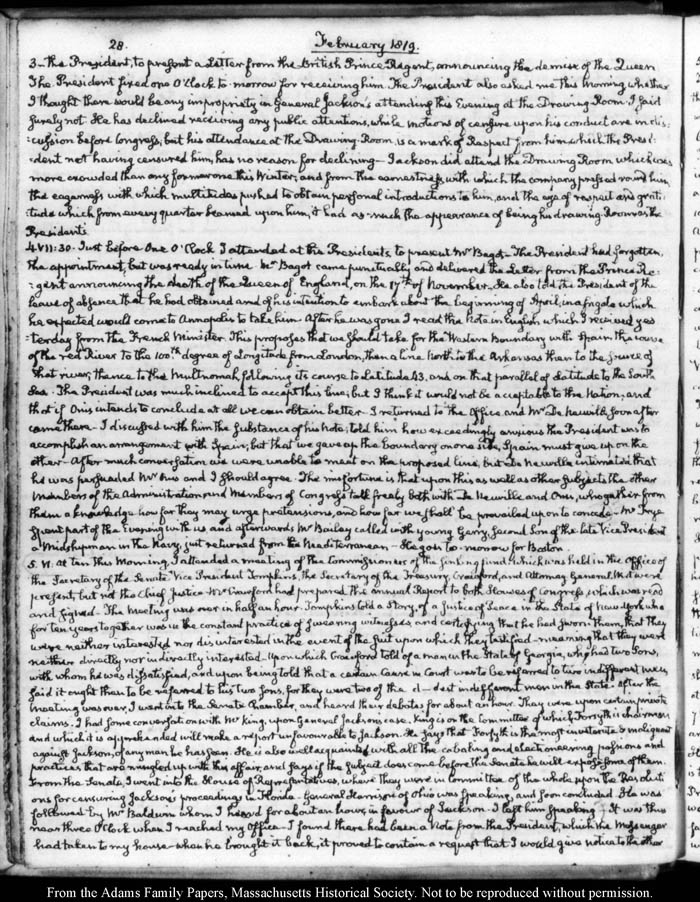 28.
February 1819.
3— the President, to present a Letter from the British Prince Regent, announcing the demise of the Queen
The President fixed one O'Clock to-morrow for receiving him. The President also asked me this morning whether
I thought there would be any impropriety in General Jackson's attending this Evening at the Drawing Room. I said
surely not. He has declined receiving any public attentions, while motions of censure upon his conduct are in dis-
:cussion before Congress, but his attendance at the Drawing-Room, is a mark of Respect from him which the Presi-
:dent not having censured him, has no reason for declining— Jackson did attend the Drawing Room which was
more crowded than any former one this Winter; and from the earnestness with which the company pressed round him,
the eagerness with which multitudes pushed to obtain personal introductions to him, and the eye of respect and grati-
:tude which from every quarter beamed upon him, it had as much the appearance of being his drawing Room as the
Presidents
4. VII:30. Just before One O'Clock I attended at the Presidents, to present Mr Bagot— The President had forgotten
the appointment, but was ready in time. Mr Bagot came punctually, and delivered the Letter from the Prince Re-
:gent announcing the death of the Queen of England, on the 17th of November. He also told the President of the
leave of absence that he had obtained and of his intention to embark about the beginning of April, in a frigate which
he expected would come to Annapolis to take him— After he was gone I read the Note in English which I received yes-
:terday from the French Minister. This proposes that we should take for the Western Boundary with Spain the course
of the red River to the 100th degree of Longitude from London, then a line North to the Arkansas then to the source of
that river, thence to the Multnomah, following its course to Latitude 43, and on that parallel of Latitude to the South
Sea. The President was much inclined to accept this line, but I think it would not be acceptable to the Nation, and
that if Onis intends to conclude at all we can obtain better— I returned to the Office and Mr De Neuville soon after
came there— I discussed with him the Substance of his Note; told him how exceedingly anxious the President was to
accomplish an arrangement with Spain; but that we gave up the boundary on one side, Spain must give up on the
other— After much conversation we were unable to meet on the proposed line, but De Neuville intimated that
he was persuaded Mr Onis and I should agree. The misfortune is that upon this as well as other Subjects the other
Members of the Administration and Members of Congress talk freely both with De Neuville and Onis, who gather from
them a knowledge how far they may urge pretensions, and how far we shall be prevailed upon to concede— Mr Frye
spent part of the Evening with us and afterwards Mr Bailey called with young Gerry, Second Son of the late Vice-President
a Midshipman in the Navy, just returned from the Mediterranean— He goes to-morrow for Boston.
5. VI. At ten this Morning, I attended a meeting of the Commissioners of the sinking fund, which was held in the Office of
the Secretary of the Senate. Vice President Tompkins, the Secretary of the Treasury, Crawford, and Attorney General Wirt were
present, but not the Chief Justice— Mr Crawford had prepared the annual Report to both Houses of Congress which was read
and signed— The meeting was over in half an hour. Tompkins told a Story, of a Justice of Peace in the State of New York who
for ten years together was in the constant practice of swearing witnesses and certifying that he had sworn them, that they
were neither interested nor disinterested in the event of the suit upon which they testified— meaning that they were
neither directly nor indirectly interested— Upon which Crawford told of a man in the State of Georgia, who had two Sons,
with whom he was dissatisfied, and upon being told that a certain Cause in Court was to be referred to two indifferent men
said it ought then to be referred to his two Sons, for they were two of the d—dest indifferent men in the State— After the
meeting was over, I went into the Senate Chamber, and heard their debates for about an hour. They were upon certain private
claims. I had some conversation with Mr King, upon General Jackson's case. King is on the Committee of which Forsyth is chairman
and which it is apprehended will make a report unfavourable to Jackson. He says that Forsyth is the most inveterate & malignant
against Jackson, of any man he has seen. He is also well acquainted with all the cabaling and electioneering passions and
practices that are mingled up with this affair, and says if the subject does come before the Senate he will expose some of them.
From the Senate, I went into the House of Representatives, where they were in committee of the whole upon the Resoluti-
ons for censuring Jackson's proceedings in Florida— General Harrison of Ohio was speaking, and soon concluded. He was
followed by Mr Baldwin whom I heard for about an hour, in favour of Jackson— I left him speaking— It was thus
near three O'Clock when I reached my Office— I found there had been a Note from the President, which the Messenger
had taken to my house— when he brought it back, it proved to contain a request that I would give notice to the other
From the Adams Family Papers, Massachusetts Historical Society. Not to be reproduced without permission.